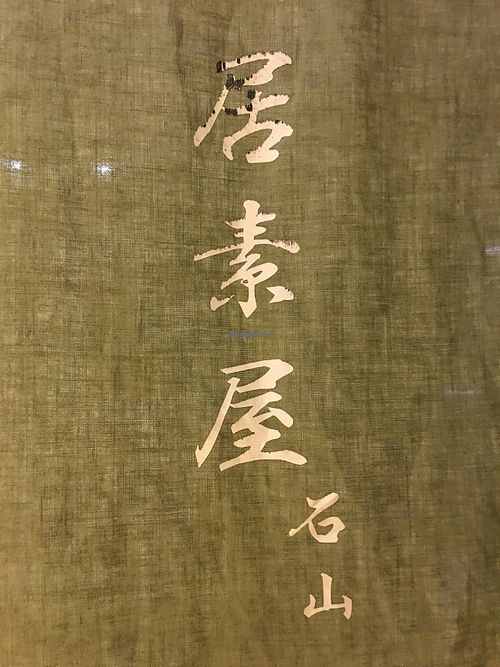 居素屋
石山